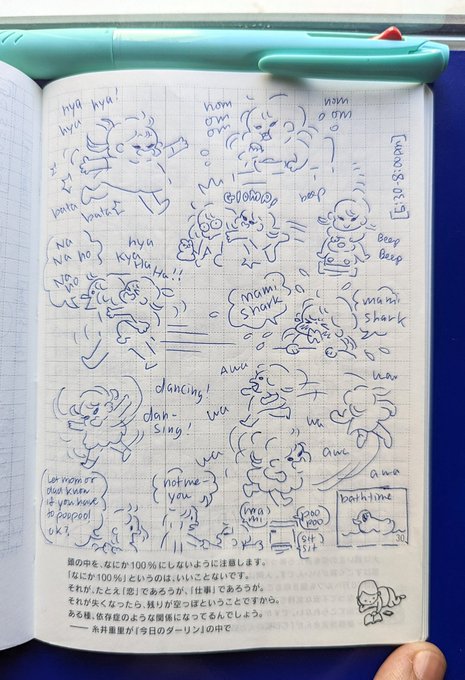 nya nya!
nya
bata
bata
nom
om
om
nom
om
[6:30-8:00pm]
Beep
Beep
Na
Na no
Na
no
nya
Kya
Ha
Ha!!
mami
shark
mami
shark
dancing!
dan-
sing!
awa
wa
wa
wa
awa
awa
Let mom or
dad know
if you have
to poopoo!
ok?
not me-
you
ma
mi
poo
poo
sit
sit
bathtime
30
頭の中を、なにか100%にしないように注意します。
「なにか100%」というのは、いいことないです。
それが、たとえ「恋」であろうが、「仕事」であろうが。
それが失くなったら、残りが空っぽということですから。
ある種、依存症のような関係になってるんでしょう。
—— 糸井重里が『今日のダーリン』の中で